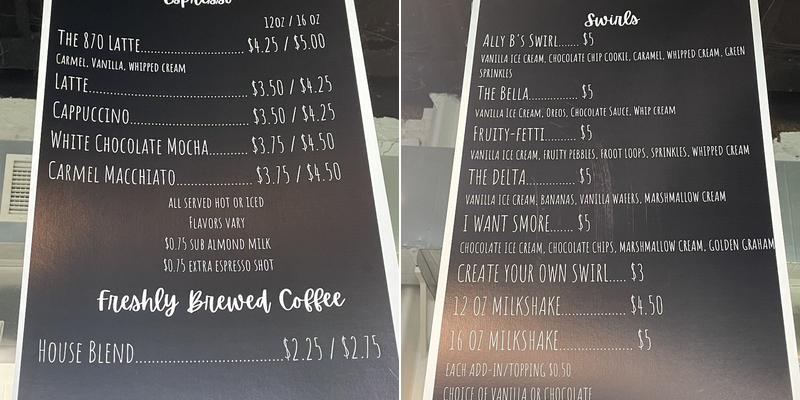 Espresso
12oz / 16 oz
The 870 Latte........................ $4.25 / $5.00
Carmel, Vanilla, whipped cream
Latte..................................... $3.50 / $4.25
Cappuccino........................... $3.50 / $4.25
White Chocolate Mocha......... $3.75 / $4.50
Carmel Macchiato................. $3.75 / $4.50
All served hot or iced
Flavors vary
$0.75 sub almond milk
$0.75 extra espresso shot
Freshly Brewed Coffee
House Blend.................................$2.25 / $2.75
Swirls
Ally B's Swirl....... $5
Vanilla ice cream, chocolate chip cookie, caramel, whipped cream, green
sprinkles
The Bella.............. $5
Vanilla Ice Cream, Oreos, Chocolate Sauce, Whip cream
Fruity-fetti.......... $5
Vanilla ice cream, fruity pebbles, froot loops, sprinkles, whipped cream
The Delta.............. $5
Vanilla ice cream, bananas, vanilla wafers, marshmallow cream
I want smore....... $5
Chocolate ice cream, chocolate chips, marshmallow cream, golden graham
Create your own swirl..... $3
12 oz milkshake.................. $4.50
16 oz milkshake.................... $5
Each add-in/topping $0.50
Choice of vanilla or chocolate